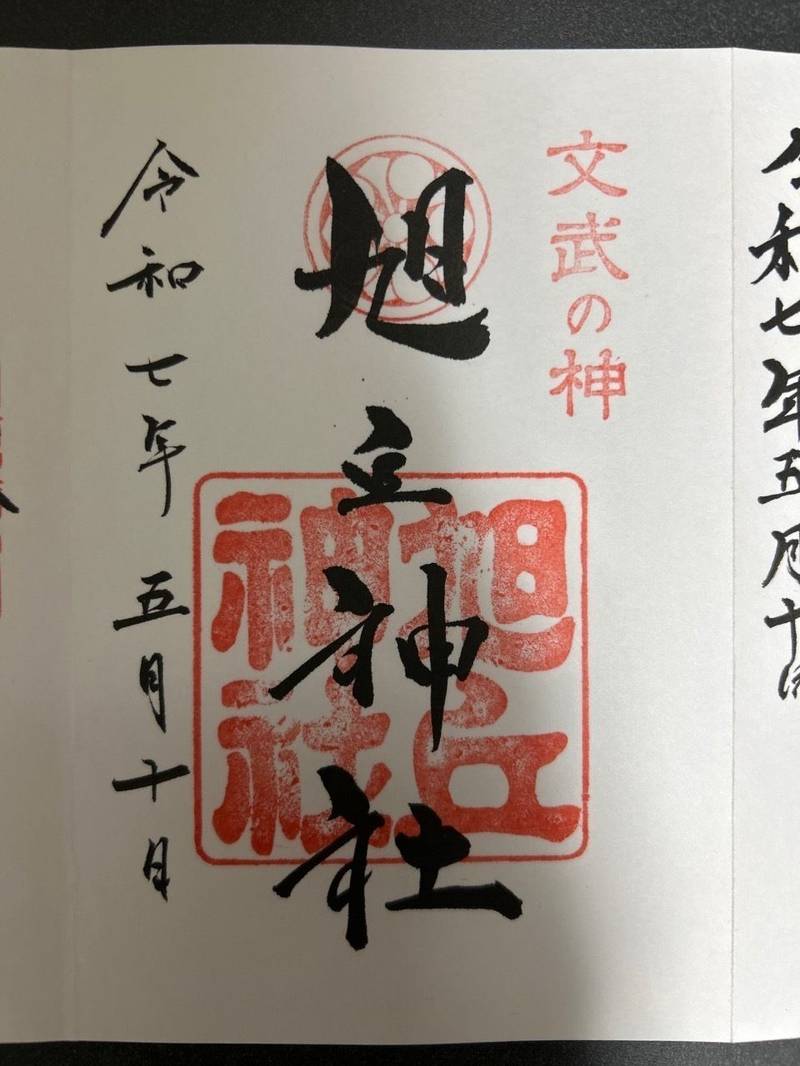 令和七年五月十
文武の神
旭丘神社
旭丘
神社
令和七年五月十日